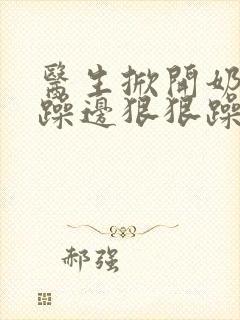 醫生掀開奶
躁邊狠狠躁
郝强